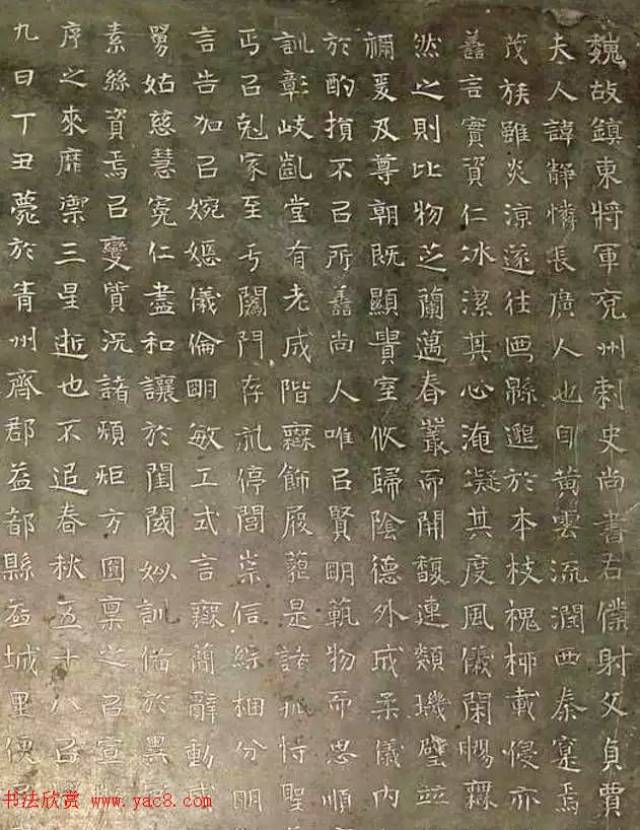 魏故鎮東將軍兗州刺史尚書右僕射父貞賈
夫人諱靜憐長廣人也自黃雲流潤西秦寔焉
茂族雖炎涼遂往而緜遝於本枝槐柳載侵亦
譱言實資仁冰潔其心淹凝其度風儀閑暢無
然之則比物芝蘭蔼春叢而開馥連類璣璧並
禰爰及尊朝既顯貴室攸歸陰德外成柔儀內
於酌損不㠯所譱尚人唯㠯賢明範物而思順
訓彰岐齓堂有老成階無飾履蘊是諸孤恃聖
丐㠯尅家至丂闔門存訓停閭崇信綜相分明
言告加㠯婉嫕儀倫明敏工式言無簡辭動成
舅姑慈慧寃仁盡和讓於閨閫妙訓侔於黑
素絲資焉㠯變質況諸煩矩方圓稟之㠯宣
序之來靡禦三星逝也不追春秋五十八㠯
九日丁丑薨於青州齊郡益都縣益城里便
书法欣赏 www.yac8.com